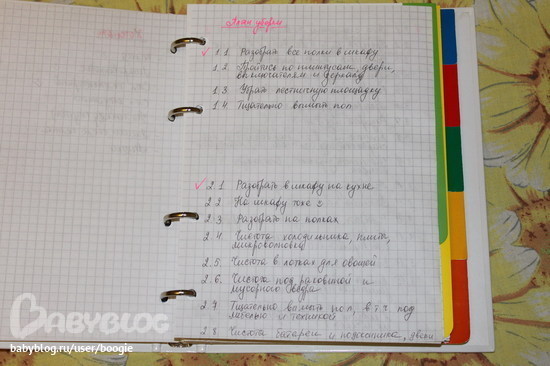 План уборки
1.1. Разобрать все полки в шкафу
1.2. Пройтись по плинтусам, двери,
выключателям и зеркалу
1.3. Убрать лестничную площадку
1.4. Тщательно вымыть пол
2.1. Разобрать в шкафу на кухне
2.2. На шкафу тоже
2.3. Разобрать на полках
2.4. Чистота холодильника, плиты,
микроволновки
2.5. Чистота в лотках для овощей
2.6. Чистота под раковиной и
мусорного ведра
2.7. Тщательно вымыть пол, в т.ч. под
мебелью и техникой
2.8. Чистота батареи и подоконника, двери
BABYBLOG
babyblog.ru/user/boogie